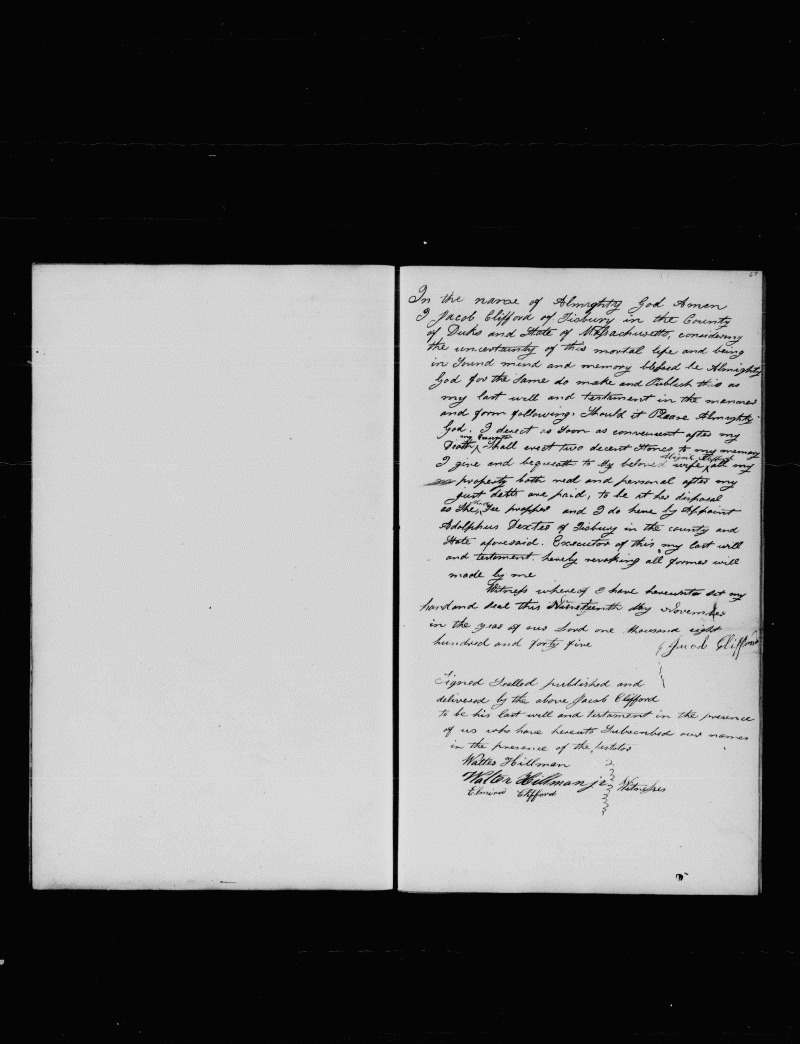 In the name of Almighty God Amen
I Jacob Clifford of Tisbury in the County
of Duks and State of Massachusetts, considering
the uncertainty of this mortal life and being
in sound mind and memory blessed be Almighty
God for the same do make and Publish this as
my last will and testament in the manner
and form following. Should it Please Almighty
God. I direct as soon as convenient after my
Death, my Executor Shall erect two decent Stones to my memory
I give and bequeath to My beloved wife Clifford all my
property both real and personal after my
just debts are paid, to be at her disposal
as She may See propper and I do here by Appoint
Adolphus Dexter of Tisbury in the county and
State aforesaid. Executor of this my last will
and testament. hereby revoking all former will
made by me
Witness whereof I have hereunto set my
hand and seal this Nineteenth day November
in the year of our Lord one thousand eight
hundred and forty five Jacob Clifford
Signed Sealled published and
delivered by the above Jacob Clifford
to be his last will and testament in the presence
of us who have hereunto Subscribed our names
in the presence of the testator
Walter Hillman
Walter Hillman jr Witnesses
Clifford